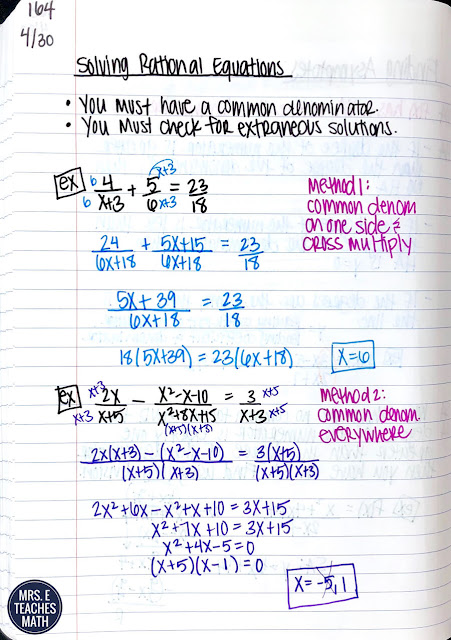 164
4/30
Solving Rational Equations
• You must have a common denominator.
• You must check for extraneous solutions.
ex 6 4/x+3 6 + 5/6 x+3 x+3 = 23/18
Method 1:
common denom
on one side &
cross multiply
24/6x+18 + 5x+15/6x+18 = 23/18
5x+39/6x+18 = 23/18
18(5x+39) = 23(6x+18)
x=6
ex x+3 2x/x+5 x+3 − x²-x-10/x²+8x+15 (x+5)(x+3) = 3/x+3 x+5 x+5
Method 2:
common denom.
everywhere
2x(x+3) − (x²-x-10)/(x+5)(x+3) = 3(x+5)/(x+5)(x+3)
2x²+6x-x²+x+10 = 3x+15
x²+7x+10 = 3x+15
x²+4x-5=0
(x+5)(x-1)=0
x=-5,1
MRS. E
TEACHES
MATH